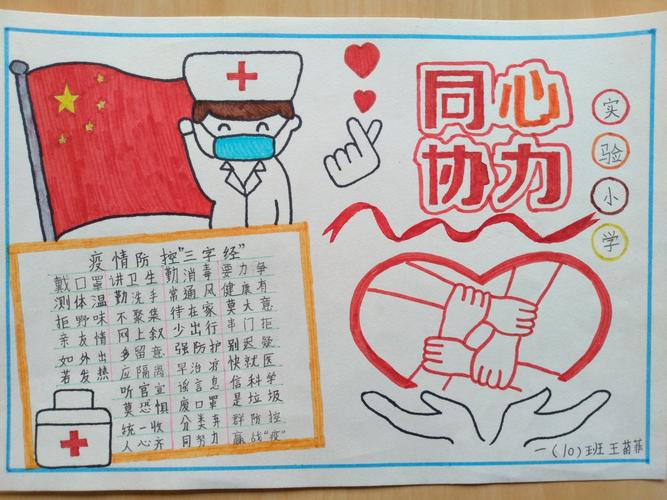 同心
协力
实
验
小
学
疫情防控"三字经"
戴口罩 讲卫生 勤消毒 要力争
测体温 勤洗手 常通风 健康有
拒野味 不聚集 待在家 莫大意
亲友情 网上叙 少出行 串门拒
如外出 多留意 强防护 别迟疑
若发热 应隔离 早治疗 快就医
听官宣 谣言息 信科学
莫恐惧 废口罩 是垃圾
统一收 分类弃 群防控
人心齐 同努力 赢战"疫"
一(10)班 王苗菲